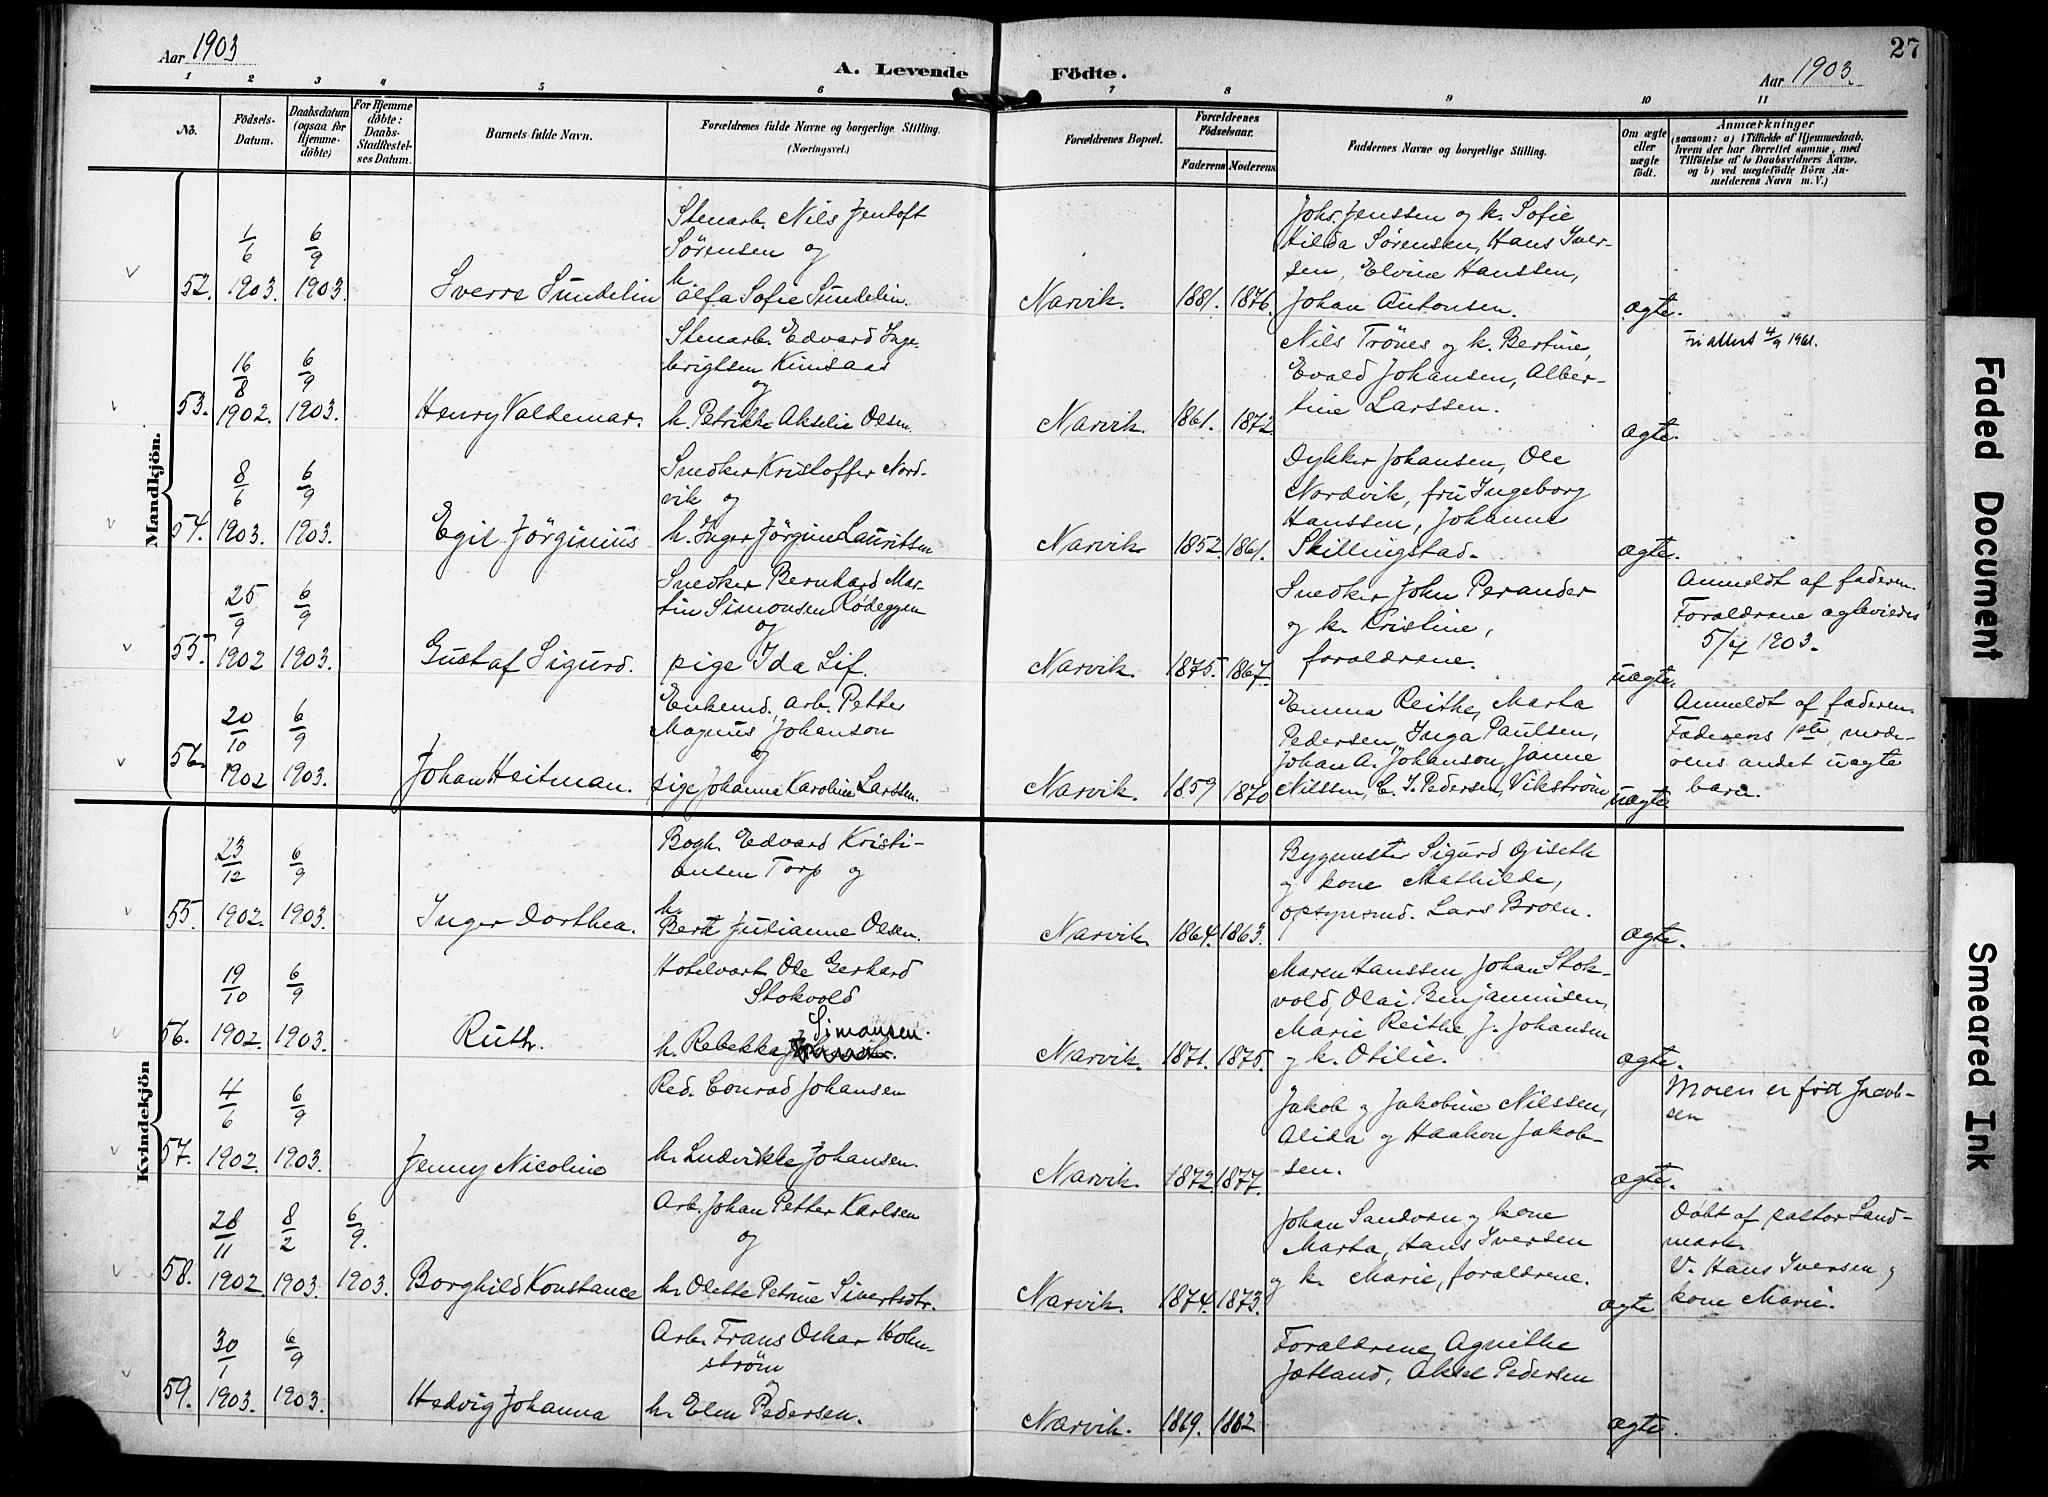 27
Aar 1903
A. Levende Födte.
Aar 1903.
1 2 3 4 5 6 7 8 9 10 11
No.
Födsels-Datum.
Daabsdatum (ogsaa for Hjemme-döbte)
For Hjemme döbte: Daabs-Stadfæstelses Datum.
Barnets fulde Navn.
Forældrenes fulde Navne og borgerlige Stilling.
(Næringsvei.)
Forældrenes Bopæl.
Forældrenes Födselsaar.
Faderens Moderens
Faddernes Navne og borgerlige Stilling.
Om ægte eller uægte födt.
Anmærkninger
(saasom: a) i Tilfælde af Hjemmedaab, hvem der har forrettet samme, med Tilföielse af to Daabsvidners Navne, og b) ved uægtefödte Börn Anmelderens Navn m. V.)
Mandkjön.
52. 1/6 1903. 6/9 1903.
Sverre Sundelin
Stenarb. Nils Jentoft
Sörensen og
h.
Alfa Sofie Sundelin.
Narvik. 1881. 1876.
Johs. Jenssen og k. Sofie
Hilda Sørensen, Hans Iver-
sen, Elvine Hanssen,
Johan Antonsen.
ægte.
53. 16/8 1902. 6/9 1903.
Henry Valdemar.
Stenarb. Edvard Inge-
brigtsen Kinsaas
og
h. Petrikke Akselie Olsen.
Narvik. 1861. 1872.
Nils Trönes og k. Bertine,
Evald Johansen, Alber-
tine Larssen.
ægte.
Fri attest 4/9 1961.
54. 8/6 1903. 6/9 1903.
Egil Jörginius
Snedker Kristoffer Nord-
vik og
h. Inger Jörgine Lauritsen
Narvik 1852. 1861.
Dykker Johansen, Ole
Nordvik, fru Ingeborg
Hanssen, Johanne
Skillingstad.
ægte.
55. 25/9 1902 6/9 1903.
Gustaf Sigurd.
Snedker Bernhard Mar-
tin Simonsen Rödeggen
og
pige Ida Lif.
Narvik. 1875. 1867.
Snedker John Perander
og k. Kristine,
forældrene.
uægte.
Anmeldt af faderen.
Forældrene ægteviedes
5/4 1903.
56. 20/10 1902 6/9 1903.
Johan Heitman.
Enkemd. arb. Petter
Magnus Johanson
og
pige Johanne Karoline Larssen.
Narvik. 1859 1870
Emma Reithe, Marta
Pedersen, Inga Paulsen,
Johan A. Johanson, Janne
Nilssen, C. J. Pedersen, Vikström
uægte
Anmeldt af faderen.
Faderens 1ste, mode-
rens andet uægte
barn.
Kvindekjön
55. 23/12 1902. 6/9 1903.
Inger Dorthea.
Bogh. Edvard Kristi-
ansen Torp og
h.
Berte Julianne Olsen.
Narvik. 1864. 1863.
Bygmester Sigurd Giseth
og kone Mathilde,
opsynsmd. Lars Broen.
ægte.
56. 19/10 1902. 6/9 1903.
Ruth.
Hotelvært Ole Gerhard
Stokvold
Simonsen.
h. Rebekka
Narvik. 1871. 1875.
Maren Hanssen, Johan Stok-
vold, Olai Benjaminsen,
Marie Reithe, J. Johansen
og k. Otilie.
ægte.
57. 4/6 1902. 6/9 1903.
Jenny Nicoline
Red. Conrad Johansen
h. Ludvikke Johansen.
Narvik. 1872. 1877.
Jakob og Jakobine Nilssen,
Alida og Haakon Jakob-
sen.
ægte.
Moren er född Jacob-
sen
58. 28/11 1902. 8/2 1903. 6/9. 1903.
Borghild Konstance
Arb. Johan Petter Karlsen
og
h. Olette Petrine Sivertsdtr.
Narvik. 1874. 1873.
Johan Sandven og kone
Marta, Hans Iversen
og k. Marie, forældrene.
ægte
Döbt af pastor Land-
mark.
V. Hans Iversen og
kone Marie.
59. 30/1 1903. 6/9 1903.
Hedvig Johanna
Arb. Frans Oskar Holm-
ström
og
h. Elen Pedersen.
Narvik. 1869. 1882
Forældrene, Agnethe
Jetland, Aksel Pedersen
ægte.
Faded Document
Smeared Ink